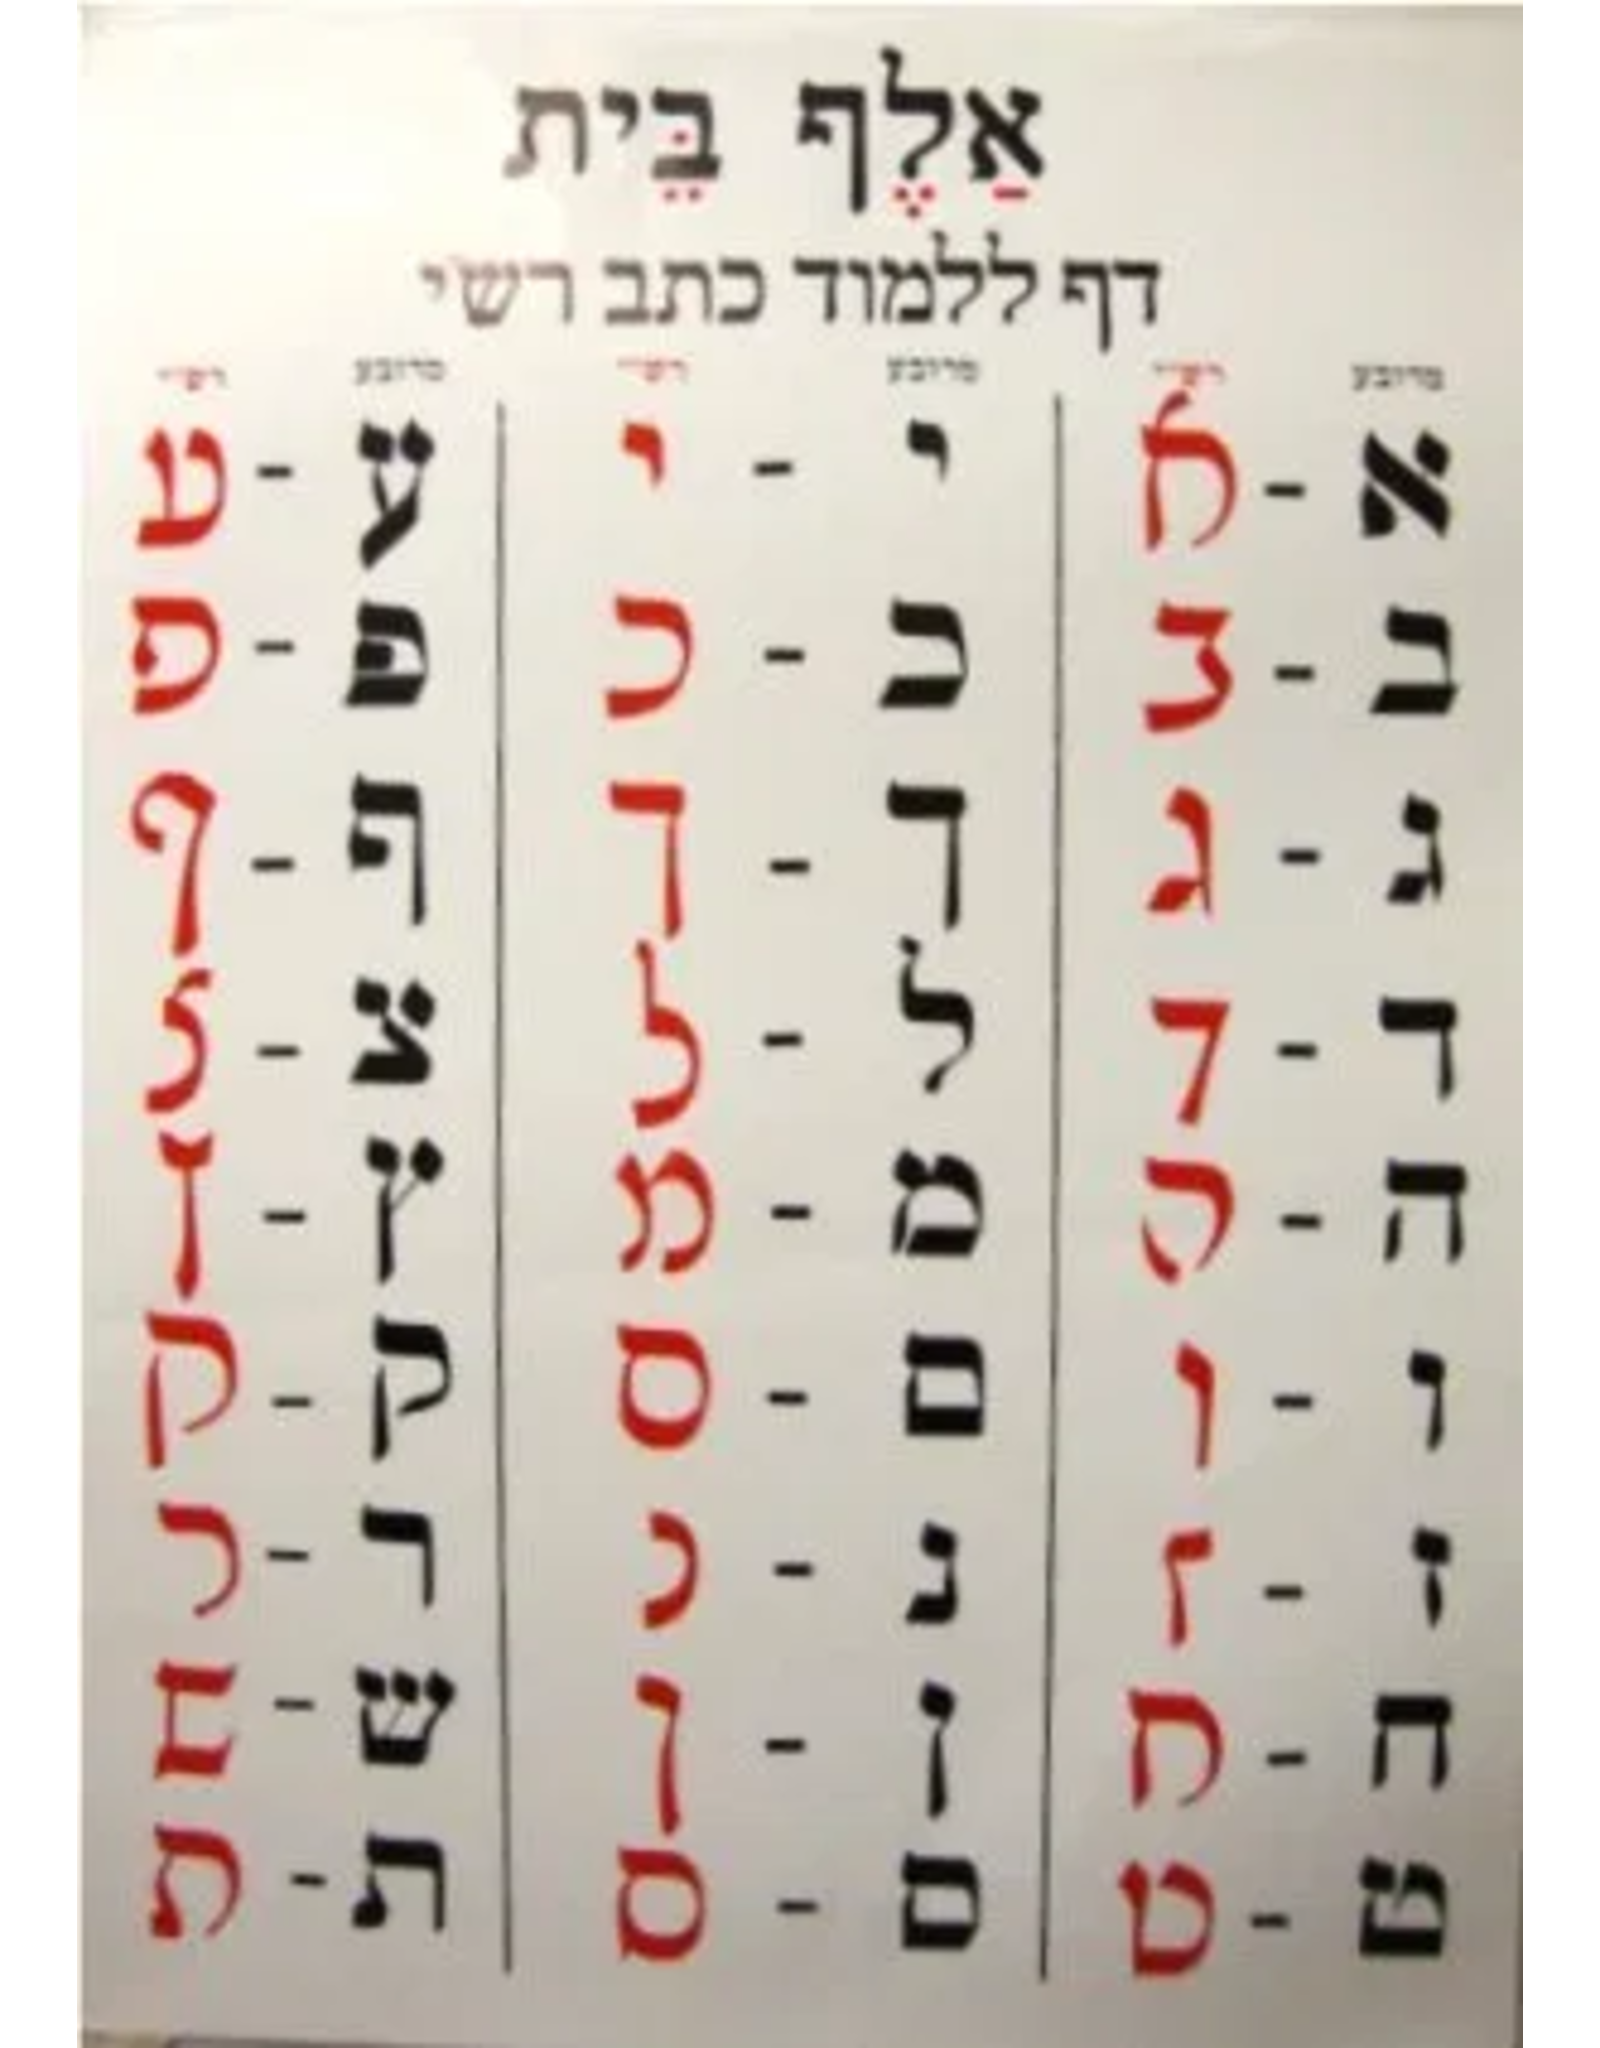 אַלֶף בֵּית
דף ללמוד כתב רש"י
מרובע רש"י מרובע רש"י מרובע רש"י
א - א י - י ע - ע
ב - ב כ - כ פ - פ
ג - ג ך - ך ף - ף
ד - ד ל - ל צ - צ
ה - ה מ - מ ץ - ץ
ו - ו ם - ם ק - ק
ז - ז נ - נ ר - ר
ח - ח ן - ן ש - ש
ט - ט ס - ס ת - ת